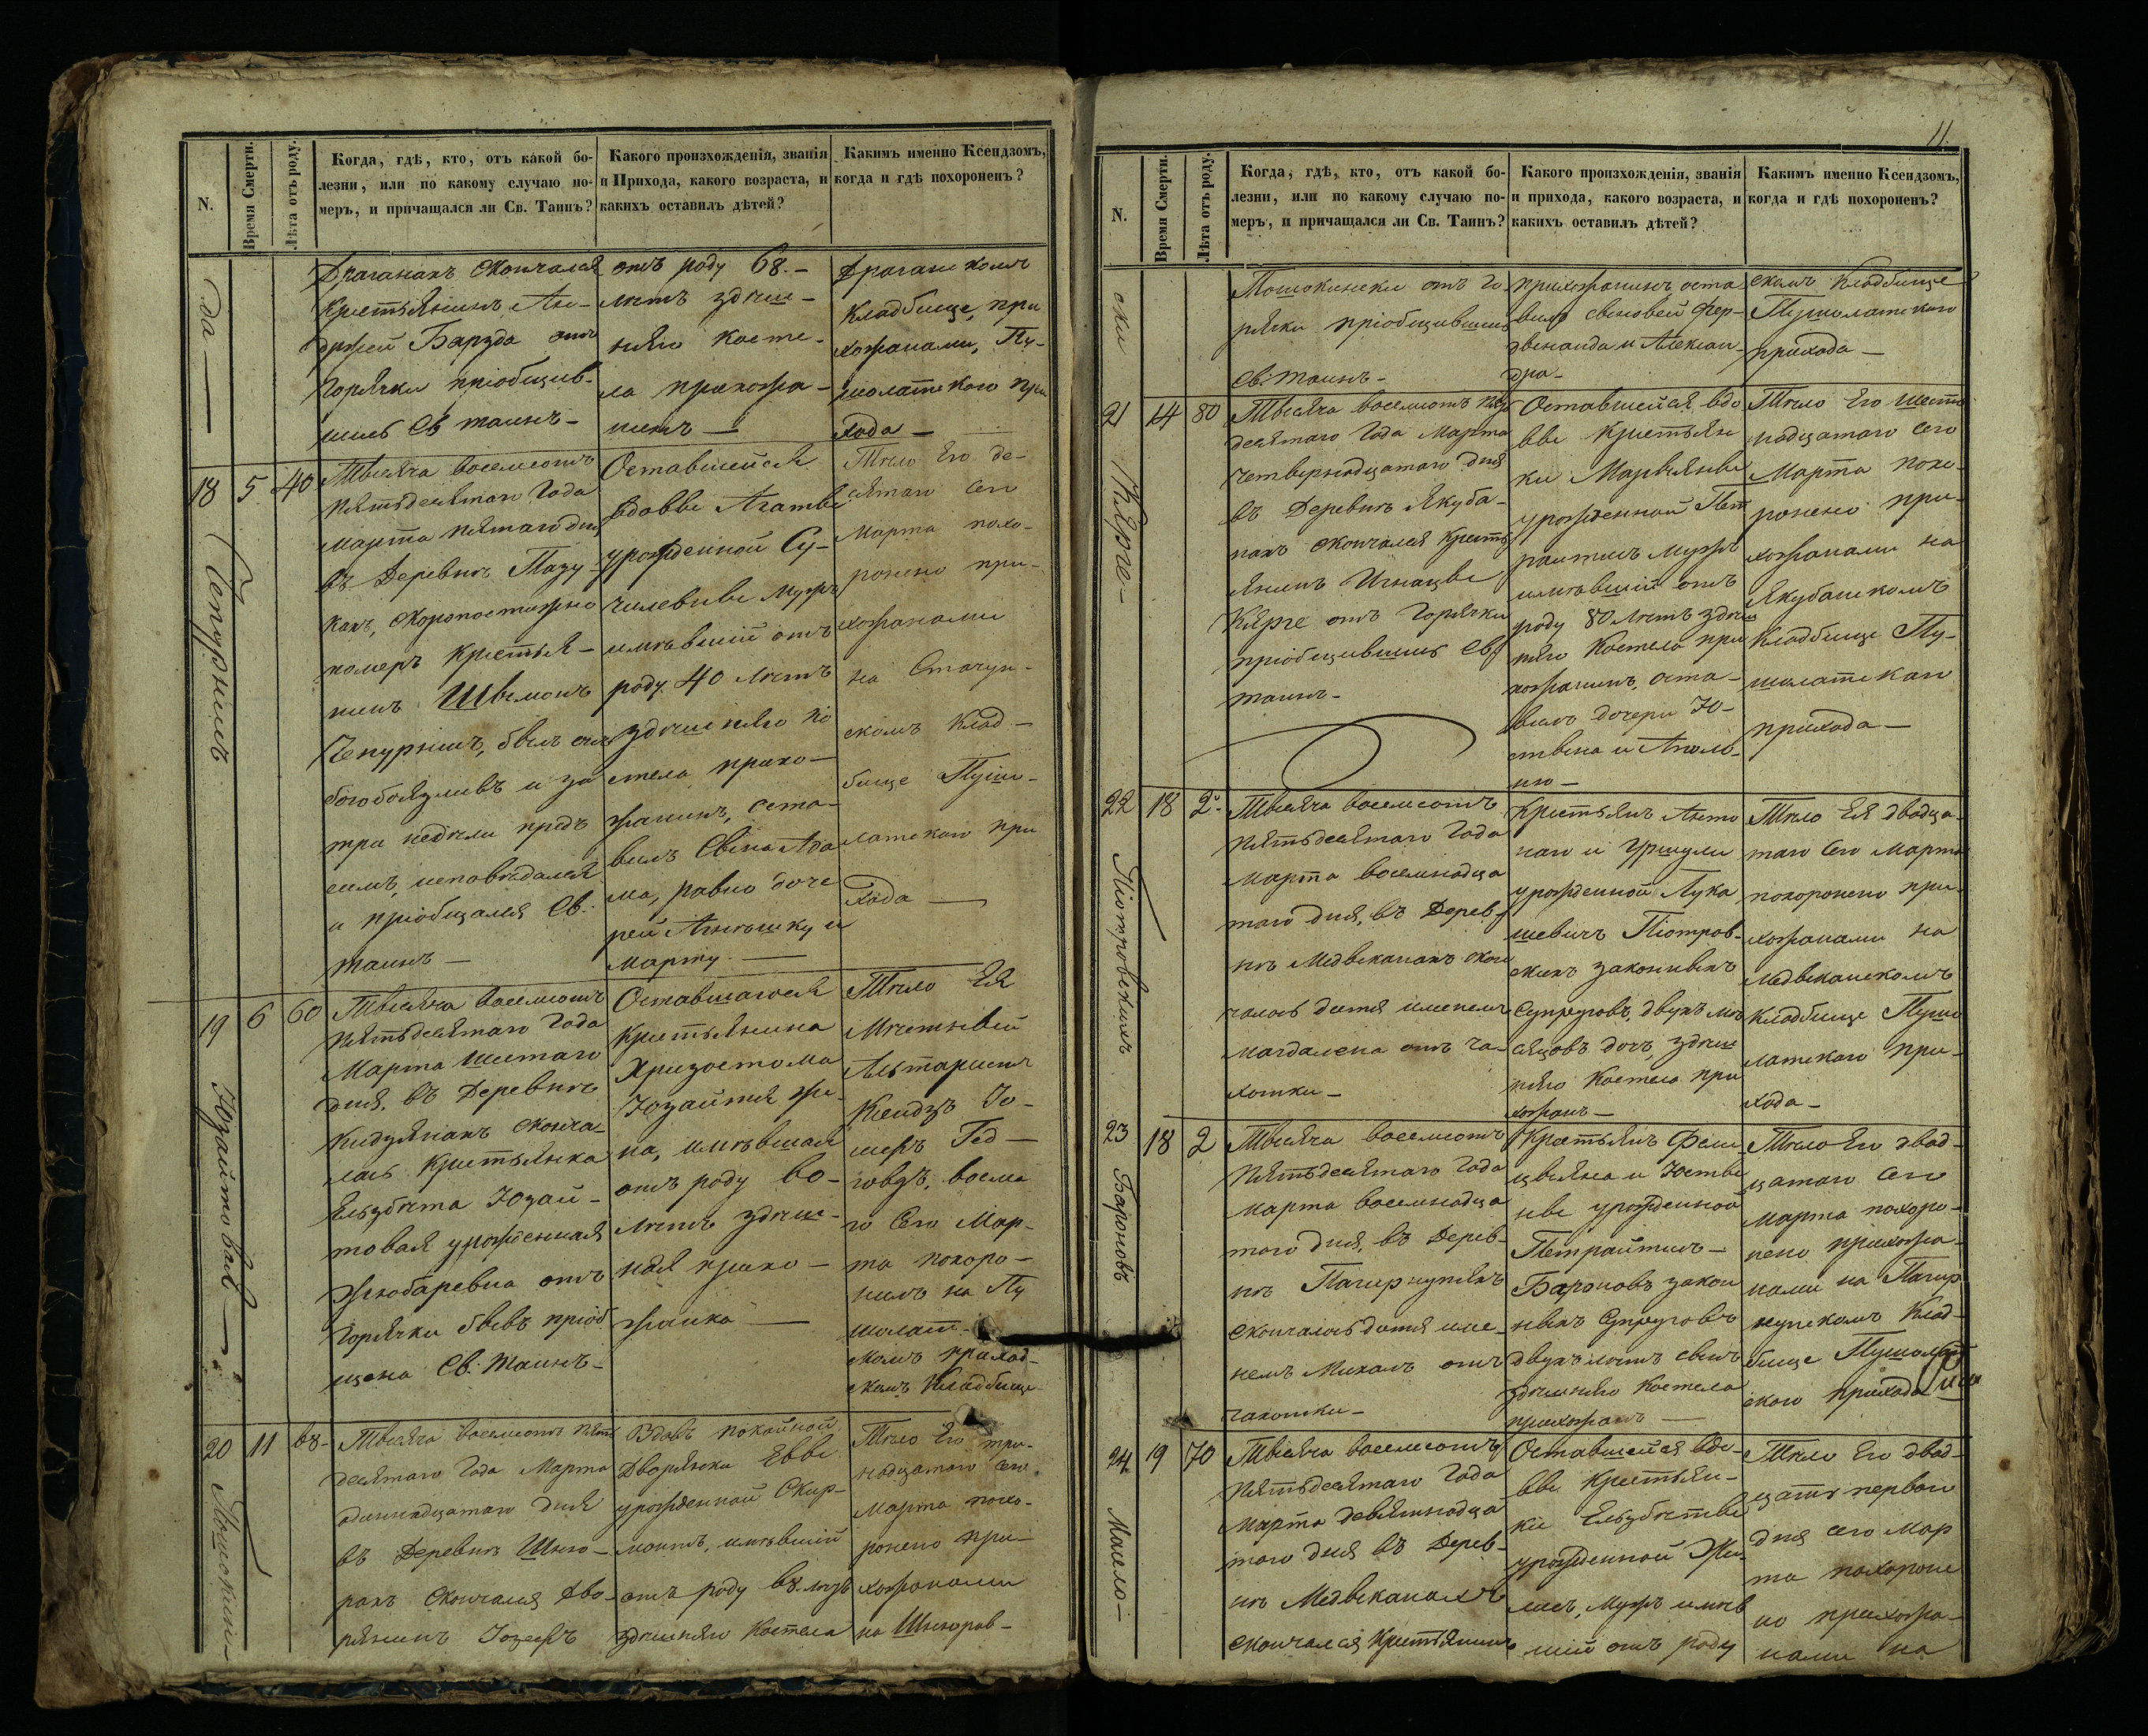 N.
Время Смерти.
Лѣта отъ роду.
Когда, гдѣ, кто, отъ какой бо-
лезни, или по какому случаю по-
меръ, и причащался ли Св. Таинъ?
Какого произхожденія, званія
и Прихода, какого возраста, и
какихъ оставилъ дѣтей?
Какимъ именно Ксендзомъ,
когда и гдѣ похороненъ?
да
Драганахъ скончался
Крестьянинъ Ан-
држей Барзда отъ
горячки пріобщив-
шись Св таинъ-
отъ роду 68.-
лѣтъ здѣш-
няго косте-
ла прихожа-
нинъ
Драганскомъ
Кладбище, при
хожанами, Пу-
шолатскаго при
хода
18
5
40
Чепурнисъ
Тысяча восемсотъ
пятьдесятаго Года
марта пятаго дня
въ Деревнѣ
кахъ, скоропостижно
померъ Крестья-
нинъ Шымонъ
Чепурнисъ, былъ
богобоязливъ и за
три недѣли предъ
симъ исповѣдался
и пріобщался Св.
таинъ
Оставшейся
вдовы Агаты
урожденной Су-
чилевны мужъ
имѣвшій отъ
роду 40 лѣтъ
здѣшняго ко
стела прихо-
жанинъ, оста-
вилъ Сына Ада
ма, равно доче
рей Анюшку и
марту.
Тѣло Его де-
сятаго сего
марта похо-
ронено при-
хожанами
на
скомъ Клад-
бище Пушо-
латскаго при
хода
19
6
60
Юзайтовая
Тысяча восемсотъ
пятьдесятаго Года
Марта шестаго
дня, въ Деревнѣ
Кидулянахъ сконча-
лась Крестьянка
Эльзбѣта Юзай-
товая урожденная
Жюбаревна отъ
горячки бывъ пріоб
щена Св. Таинъ-
Оставшагося
Крестьянина
Хризостома
Юзайтя же-
на, имѣвшая
отъ роду 60-
лѣтъ здѣш-
няя прихо-
жанка
Тѣло Ея
Мѣстный
Альтариста
Ксендзъ Іо-
Гед-
говдъ, восма
го Сего Мар-
та похоро-
нилъ на Пу
шолат-
скомъ приход-
скомъ Кладбище
20
11
68-
Пошокин-
Тысяча восемсотъ пять
десятаго Года Марта
одиннадцатаго дня
въ Деревнѣ Шню-
рахъ скончался Дво-
рянинъ Іозефъ
Вдовъ покойной
Дворянки Евы
урожденной Скир-
монтъ, имѣвшій
отъ роду 68. лѣтъ
здѣшняго Костела
Тѣло Его три-
надцатаго сего
Марта похо-
ронено при-
хожанами
на Шнюров-
11.
N.
Время Смерти.
Лѣта отъ роду.
Когда, гдѣ, кто, отъ какой бо-
лезни, или по какому случаю по-
меръ, и причащался ли Св. Таинъ?
Какого произхожденія, званія
и прихода, какого возраста, и
какихъ оставилъ дѣтей?
Какимъ именно Ксендзомъ,
когда и гдѣ похороненъ?
ски
Пошокински отъ го-
рячки пріобщившись
Св. таинъ-
прихожанинъ оста
вилъ сыновей Фер-
дынанда и Алексан-
дра-
скомъ Кладбище
Пушолатскаго
прихода
21
14
80
Кярге-
Тысяча восемсотъ пять
десятаго Года Марта
четвернадцатаго дня
въ Деревнѣ Якуба-
нахъ скончался Кресть
янинъ Игнацы
Кярге отъ Горячки
пріобщившись Св.
таинъ-
Оставшейся вдо
вы Крестьян
ки Марьяны
урожденной Пет
раитисъ мужъ
имѣвшій отъ
роду 80 лѣтъ здѣш
няго Костела при
хожанинъ, оста-
вилъ дочери Ю-
стына и Аполь-
ню
Тѣло Его шест
надцатаго сего
Марта похо-
ронено при-
хожанами на
Якубанскомъ
Кладбище Пу-
шолатскаго
прихода
22
18
2
Піотровскихъ
Тысяча восемсотъ
пятьдесятаго Года
Марта восемнадца
таго дня, въ Дерев-
нѣ Медвеканахъ скон
чалось дитя именемъ
Магдалена отъ ча-
хотки-
Крестьянъ Анто
наго и Уршули
урожденной Лука
шевичъ Піотров-
скихъ законныхъ
Супруговъ, двухъ мѣ
сяцовъ дочь, здѣш
няго Костела при
хожанъ
Тѣло Ея двадца-
таго Сего Марта
похоронено при-
хожанами на
Медвеканскомъ
Кладбище Пушо
латскаго при-
хода
23
18
2
Бароновъ
Тысяча восемсотъ
пятьдесятаго Года
марта восемнадца
таго дня, въ Дерев-
нѣ
скончалось дитя име-
немъ Михалъ отъ
чахотки-
Крестьянъ Фели
цыяна и Юсты
ны урожденной
Петрайтисъ-
Бароновъ закон
ныхъ Супруговъ
двухъ лѣтъ сынъ
здѣшняго Костела
прихожанъ
Тѣло Его двад-
цатаго сего
марта похоро-
нено прихожа-
нами на
Клад-
бище Пушолат
скаго прихода
24
19
70
Мисло-
Тысяча восемсотъ
пятьдесятаго Года
марта девятнадца
таго дня въ Дерев-
нѣ Медвеканахъ
скончался Крестьянинъ
Оставшейся вдо-
вы Крестьян-
ки Ельзбѣты
урожденной
мужъ имѣв
шій отъ роду
Тѣло Его двад-
цать перваго
дня сего Мар
та похороне
но прихожа-
нами на